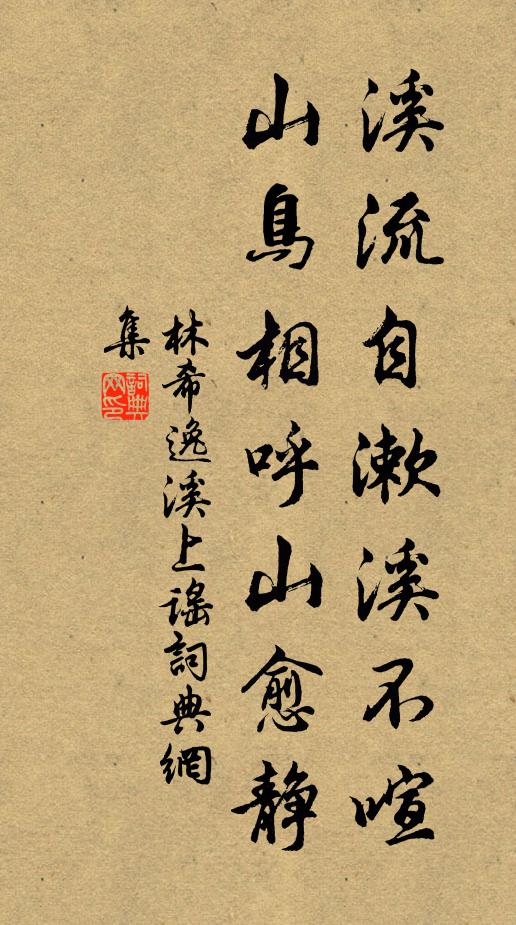 溪流自漱溪不喧
山鳥相呼山愈静
林希逸溪上謠詞典網
集
詞典
网印